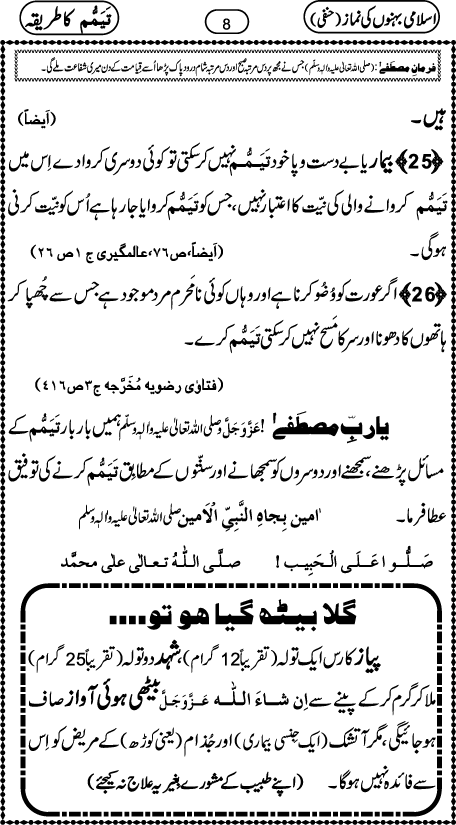 اسلامی بہنوں کی نماز (حنفی) 8 تَیَمُّم کا طریقہ
فرمانِ مصطفےٰ: (صلی اللہ تعالیٰ علیہ والہٖ وسلّم) جس نے مجھ پر دس مرتبہ صبح اور دس مرتبہ شام درود پاک پڑھا اُسے قیامت کے دن میری شفاعت ملے گی۔
ہیں۔ (اَیضاً)
﴿25﴾ بیمار یا بے دست و پا خود تَیَمُّم نہیں کر سکتی تو کوئی دوسری کروا دے اِس میں
تَیَمُّم کروانے والی کی نیّت کا اعتبار نہیں، جس کو تَیَمُّم کروایا جا رہا ہے اُس کو نیّت کرنی
ہوگی۔ (اَیضاً، ص۷۶، عالمگیری ج ۱ ص ۲۶)
﴿26﴾ اگر عورت کو وُضو کرنا ہے اور وہاں کوئی نا مَحرم مرد موجود ہے جس سے چُھپا کر
ہاتھوں کا دھونا اور سر کا مَسح نہیں کر سکتی تَیَمُّم کرے۔
(فتاوٰی رضویه مُخَرَّجه ج۳ص۴۱۶)
یا ربِّ مصطَفےٰ! عَزَّوَجَلَّ و صلی اللہ تعالیٰ علیہ والہٖ وسلّم ہمیں بار بار تَیَمُّم کے
مسائل پڑھنے، سمجھنے اور دوسروں کو سمجھانے اور سنّتوں کے مطابِق تَیَمُّم کرنے کی توفیق
عطا فرما۔ اٰمین بِجاہِ النَّبِیِّ الْاَمین صلی اللہ تعالیٰ علیہ والہٖ وسلّم
صَلُّوا عَلَی الْحَبِیب ! صلَّی اللّٰہُ تعالٰی علٰی محمَّد
گلا بیٹھ گیا ھو تو....
پیاز کا رس ایک تولہ (تقریباً 12 گرام)، شہد دو تولہ (تقریباً 25 گرام)
ملا کر گرم کر کے پینے سے اِن شاءَ اللّٰہ عَزَّوَجَلَّ بیٹھی ہوئی آواز صاف
ہو جائیگی، مگر آتشک (ایک جنسی بیماری) اور جُذام (یعنی کوڑھ) کے مریض کو اِس
سے فائدہ نہیں ہوگا۔ (اپنے طبیب کے مشورے بغیر یہ علاج نہ کیجئے)